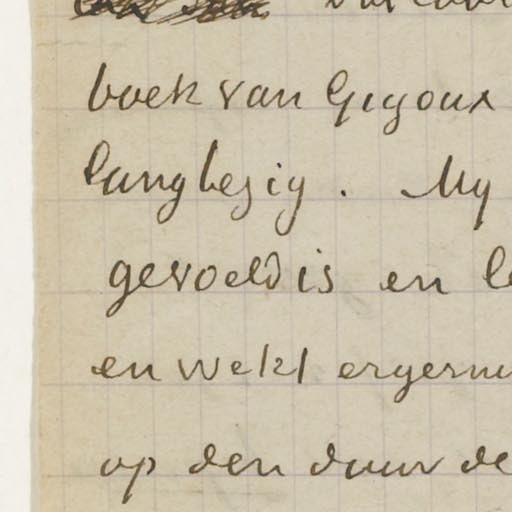 boek van Gigoux
lang bezig. My
gevoeld is en
en wekt
op den duur de